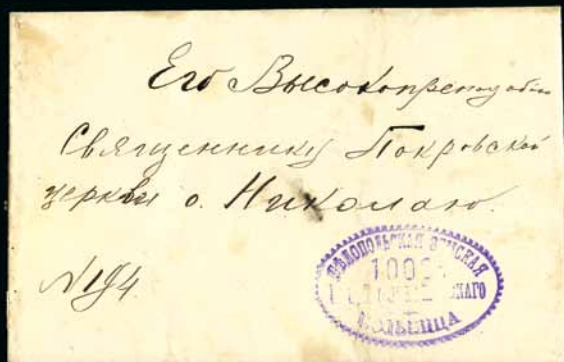 Его Высокопреподобію
Священнику Покровской
церкви о. Николаю.
№ 194.
БѢЛОПОЛЬСКАЯ ЗЕМСКАЯ
БОЛЬНИЦА